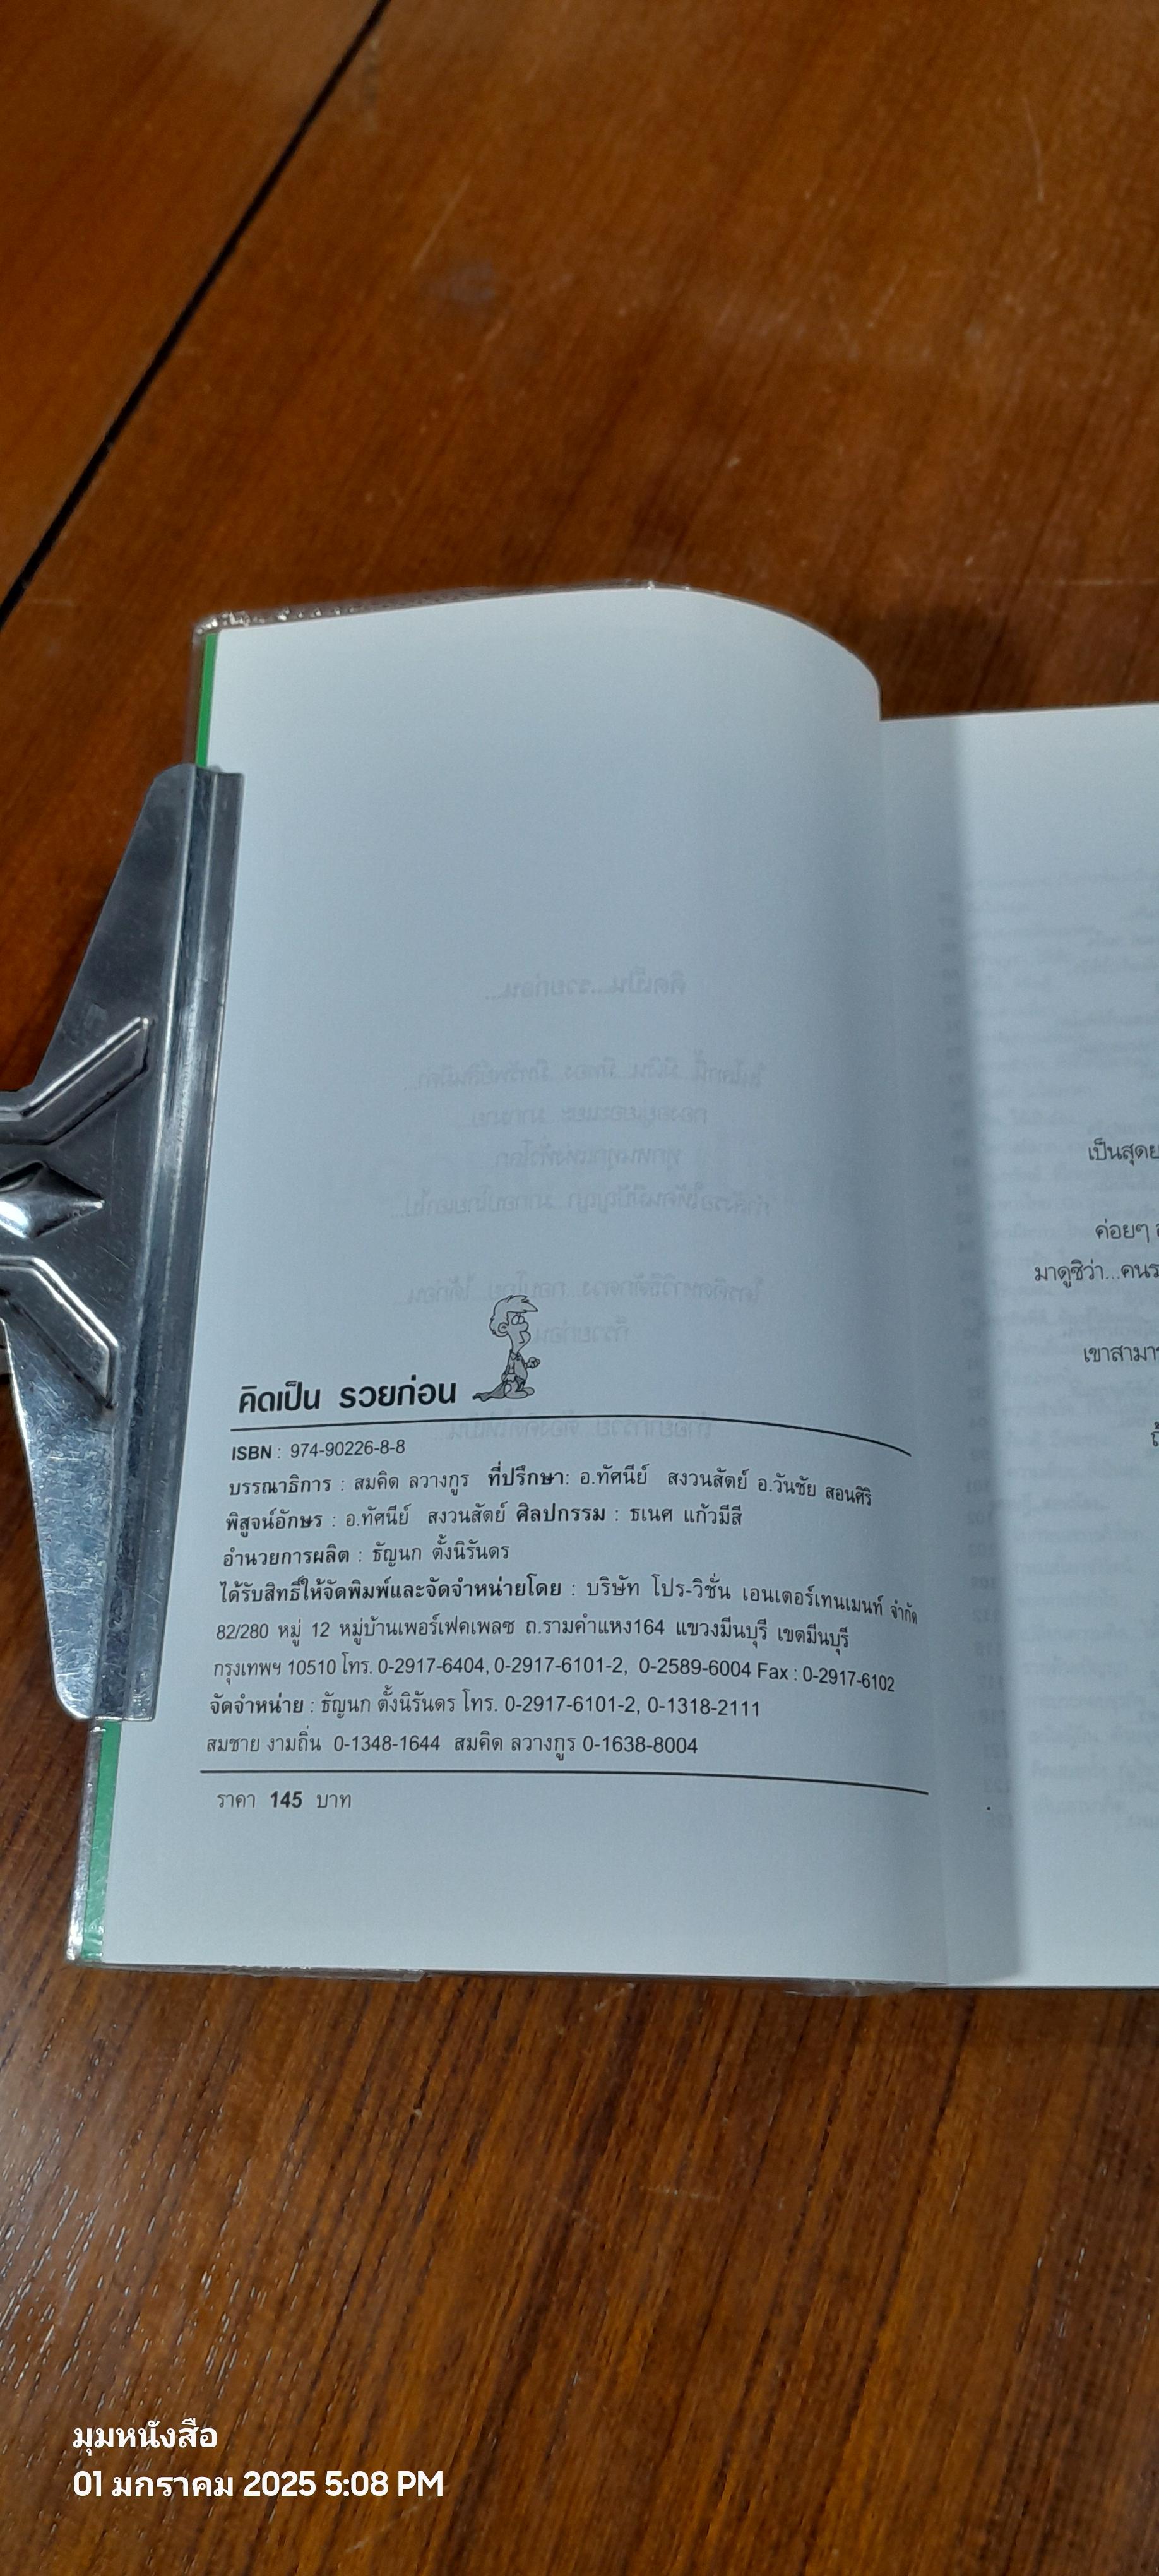 คิดเป็น รวยก่อน
ISBN : 974-90226-8-8
บรรณาธิการ : สมคิด ลวางกูร ที่ปรึกษา: อ.ทัศนีย์ สงวนสัตย์ อ.วันชัย สอนศิริ
พิสูจน์อักษร : อ.ทัศนีย์ สงวนสัตย์ ศิลปกรรม : ธเนศ แก้วมีสี
อำนวยการผลิต : ธัญนก ตั้งนิรันดร
ได้รับสิทธิ์ให้จัดพิมพ์และจัดจำหน่ายโดย : บริษัท โปร-วิชั่น เอนเตอร์เทนเมนท์ จำกัด
82/280 หมู่ 12 หมู่บ้านเพอร์เฟคเพลซ ถ.รามคำแหง164 แขวงมีนบุรี เขตมีนบุรี
กรุงเทพฯ 10510 โทร. 0-2917-6404, 0-2917-6101-2, 0-2589-6004 Fax : 0-2917-6102
จัดจำหน่าย : ธัญนก ตั้งนิรันดร โทร. 0-2917-6101-2, 0-1318-2111
สมชาย งามถิ่น 0-1348-1644 สมคิด ลวางกูร 0-1638-8004
ราคา 145 บาท
เป็นสุดย
ค่อยๆ
มาดูซิว่า...คนร
เขาสามาร
มุมหนังสือ
01 มกราคม 2025 5:08 PM